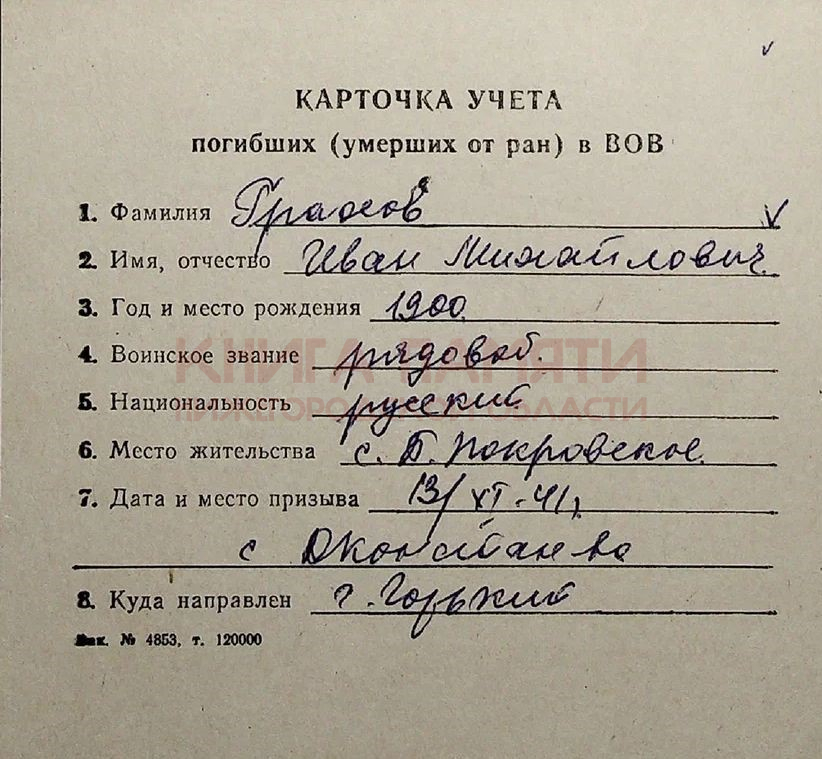 КАРТОЧКА УЧЕТА
погибших (умерших от ран) в ВОВ
1. Фамилия Грахов
2. Имя, отчество Иван Михайлович
3. Год и место рождения 1900.
4. Воинское звание рядовой.
5. Национальность русский
6. Место жительства с. Б. Покровское.
7. Дата и место призыва 13/XI-41г.
с
8. Куда направлен г. Горький
Зак. № 4853, т. 120000
КНИГА ПАМЯТИ
НИЖЕГОРОДСКОЙ ОБЛАСТИ